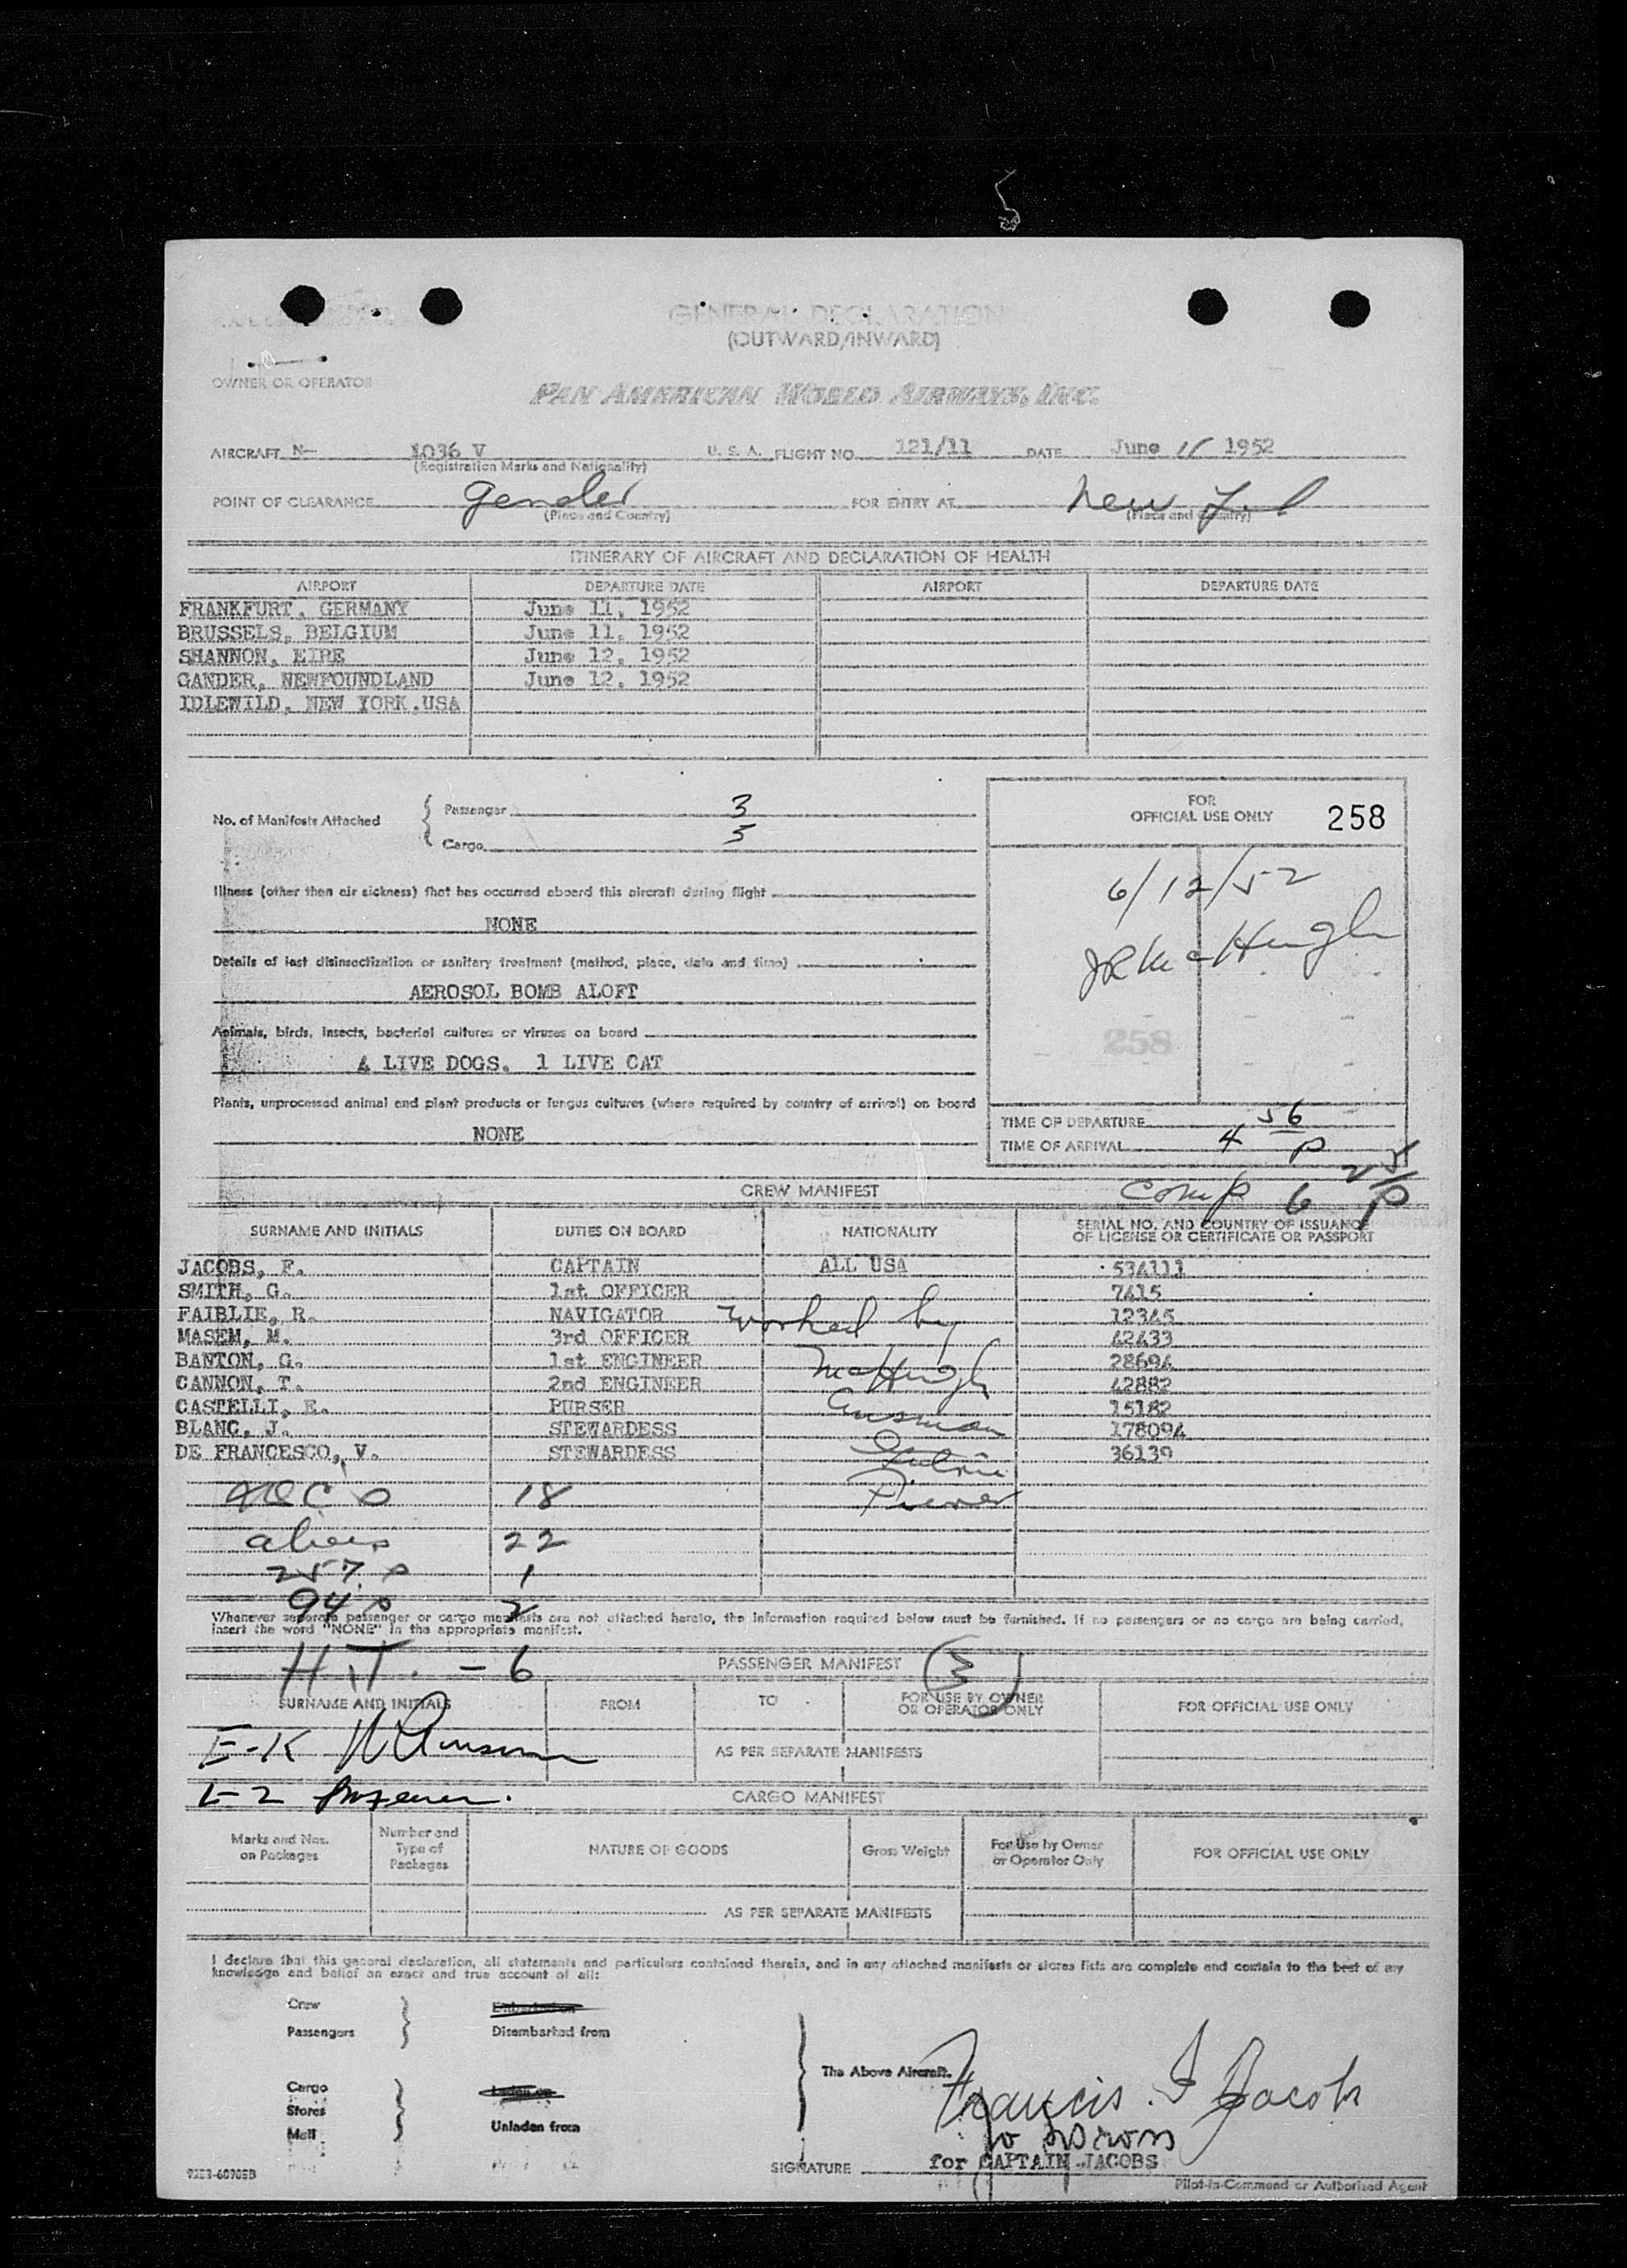 GENERAL DECLARATION
(OUTWARD/INWARD)
OWNER OR OPERATOR
PAN AMERICAN WORLD AIRWAYS, INC.
AIRCRAFT N- 1036 V U. S. A. FLIGHT NO. 121/11 DATE June 11 1952
(Registration Marks and Nationality)
POINT OF CLEARANCE Gander FOR ENTRY AT New
(Place and Country) (Place and Country)
ITINERARY OF AIRCRAFT AND DECLARATION OF HEALTH
AIRPORT DEPARTURE DATE AIRPORT DEPARTURE DATE
FRANKFURT, GERMANY June 11, 1952
BRUSSELS, BELGIUM June 11, 1952
SHANNON, EIRE June 12, 1952
GANDER, NEWFOUNDLAND June 12, 1952
IDLEWILD, NEW YORK.USA
No. of Manifests Attached
Passenger 3
Cargo 5
FOR
OFFICIAL USE ONLY 258
6/12/52
JR McHugh
258
Illness (other than air sickness) that has occurred aboard this aircraft during flight
NONE
Details of last disinsectization or sanitary treatment (method, place, date and time)
AEROSOL BOMB ALOFT
Animals, birds, insects, bacterial cultures or viruses on board
4 LIVE DOGS. 1 LIVE CAT
Plants, unprocessed animal and plant products or fungus cultures (where required by country of arrival) on board
NONE
TIME OF DEPARTURE
TIME OF ARRIVAL 4 56 P
Comp 6 25 P
CREW MANIFEST
SURNAME AND INITIALS DUTIES ON BOARD NATIONALITY SERIAL NO. AND COUNTRY OF ISSUANCE
OF LICENSE OR CERTIFICATE OR PASSPORT
JACOBS, F. CAPTAIN ALL USA 534111
SMITH, G. 1st OFFICER 7415
FAIRLIE, R. NAVIGATOR 12345
MASEM, M. 3rd OFFICER 42433
BANTON, G. 1st ENGINEER 28694
CANNON, T. 2nd ENGINEER 42882
CASTELLI, E. PURSER 15182
BLANC, J. STEWARDESS 178094
DE FRANCESCO, V. STEWARDESS 36139
worked by
McHugh
18
aliens 22
257 s 1
94 s 2
Whenever separate passenger or cargo manifests are not attached hereto, the information required below must be furnished. If no passengers or no cargo are being carried,
insert the word "NONE" in the appropriate manifest.
H.T. - 6
PASSENGER MANIFEST (3)
SURNAME AND INITIALS FROM TO FOR USE BY OWNER
OR OPERATOR ONLY FOR OFFICIAL USE ONLY
E-K
AS PER SEPARATE MANIFESTS
L-Z
CARGO MANIFEST
Marks and Nos.
on Packages
Number and
Type of
Packages
NATURE OF GOODS
Gross Weight
For Use by Owner
or Operator Only
FOR OFFICIAL USE ONLY
AS PER SEPARATE MANIFESTS
I declare that this general declaration, all statements and particulars contained therein, and in any attached manifests or stores lists are complete and contain to the best of my
knowledge and belief an exact and true account of all:
Crew
Passengers
Disembarked from
Cargo
Stores
Mail
Unladen from
The Above Aircraft.
Francis J Jacobs
for CAPTAIN JACOBS
SIGNATURE
Pilot-in-Command or Authorized Agent